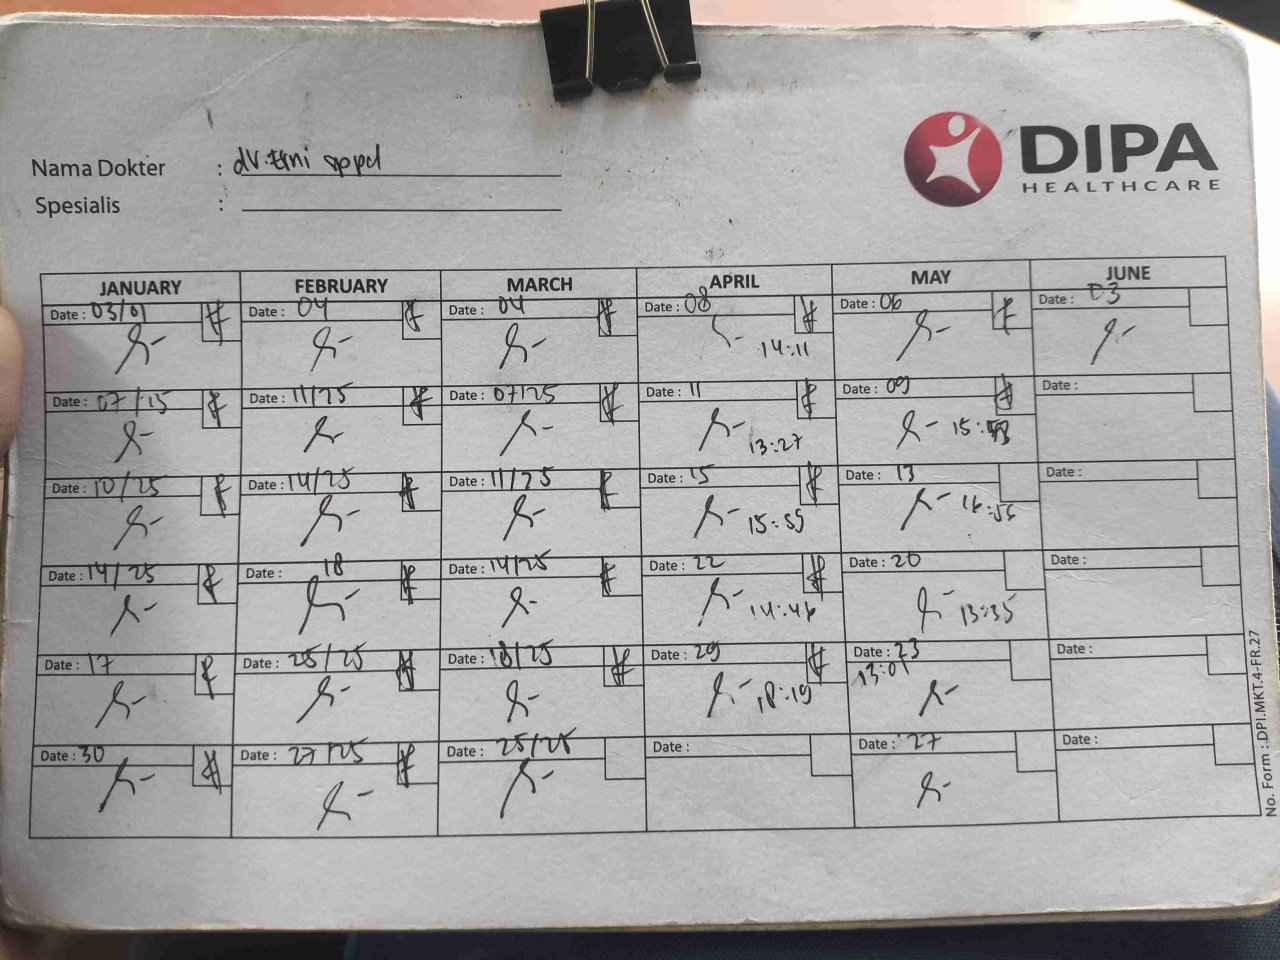 DIPA
HEALTHCARE
Nama Dokter : dr. Erni sppd
Spesialis :
JANUARY FEBRUARY MARCH APRIL MAY JUNE
Date : 03/01 Date : 04 Date : 04 Date : 08 Date : 06 Date : 03
14:11
Date : 07/15 Date : 11/25 Date : 07/25 Date : 11 Date : 09 Date :
13:27 15:
Date : 10/25 Date : 14/25 Date : 11/25 Date : 15 Date : 13 Date :
15:55 16:55
Date : 14/25 Date : 18 Date : 14/25 Date : 22 Date : 20 Date :
14:46 13:35
Date : 17 Date : 25/25 Date : 18/25 Date : 29 Date : 23 Date :
18:19 13:01
Date : 30 Date : 27/25 Date : 25/25 Date : Date : 27 Date :
No. Form : DPI.MKT.4-FR.27